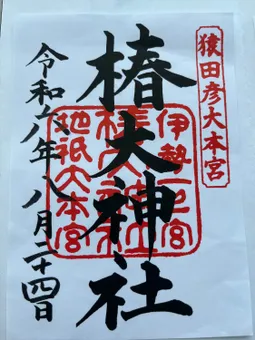 猿田彦大本宮
椿大神社
伊勢一宮
椿大神社
地祇大本宮
令和六年八月二十四日